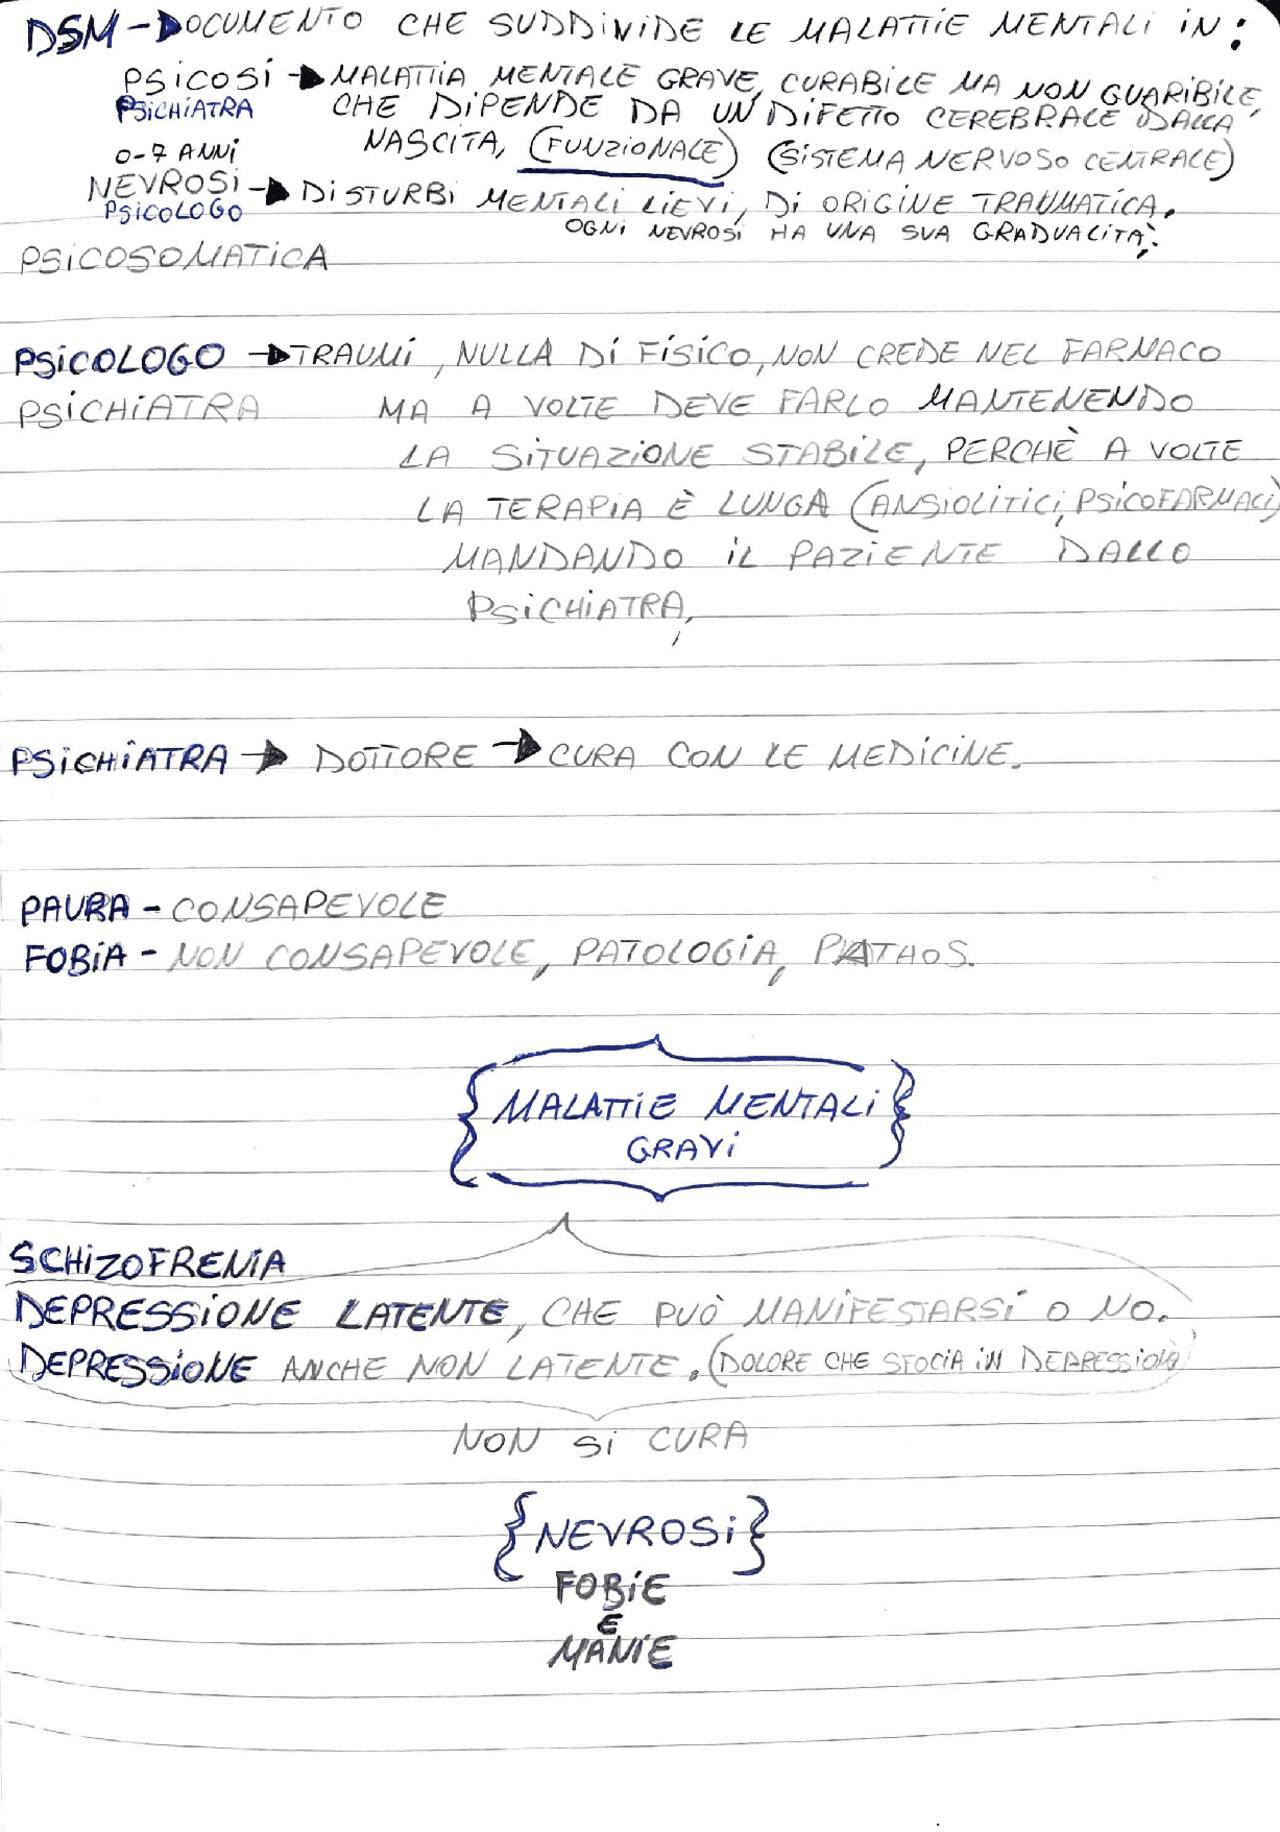 DSM - DOCUMENTO CHE SUDDIVIDE LE MALATTIE MENTALI IN:
PSICOSI → MALATTIA MENTALE GRAVE, CURABILE MA NON GUARIBILE,
PSICHIATRA CHE DIPENDE DA UN DIFETTO CEREBRALE DALLA
NASCITA, (FUNZIONALE) (SISTEMA NERVOSO CENTRALE)
0-7 ANNI
NEVROSI → DISTURBI MENTALI LIEVI, DI ORIGINE TRAUMATICA.
PSICOLOGO OGNI NEVROSI HA UNA SUA GRADUALITÀ;
PSICOSOMATICA
PSICOLOGO → TRAUMI, NULLA DI FISICO, NON CREDE NEL FARMACO
PSICHIATRA MA A VOLTE DEVE FARLO MANTENENDO
LA SITUAZIONE STABILE, PERCHÈ A VOLTE
LA TERAPIA È LUNGA (ANSIOLITICI, PSICOFARMACI)
MANDANDO IL PAZIENTE DALLO
PSICHIATRA,
PSICHIATRA → DOTTORE → CURA CON LE MEDICINE.
PAURA - CONSAPEVOLE
FOBIA - NON CONSAPEVOLE, PATOLOGIA, PATHOS.
{MALATTIE MENTALI}
GRAVI
SCHIZOFRENIA
DEPRESSIONE LATENTE, CHE PUÒ MANIFESTARSI O NO.
DEPRESSIONE ANCHE NON LATENTE. (DOLORE CHE SFOCIA IN DEPRESSIONE)
NON SI CURA
{NEVROSI}
FOBIE
E
MANIE